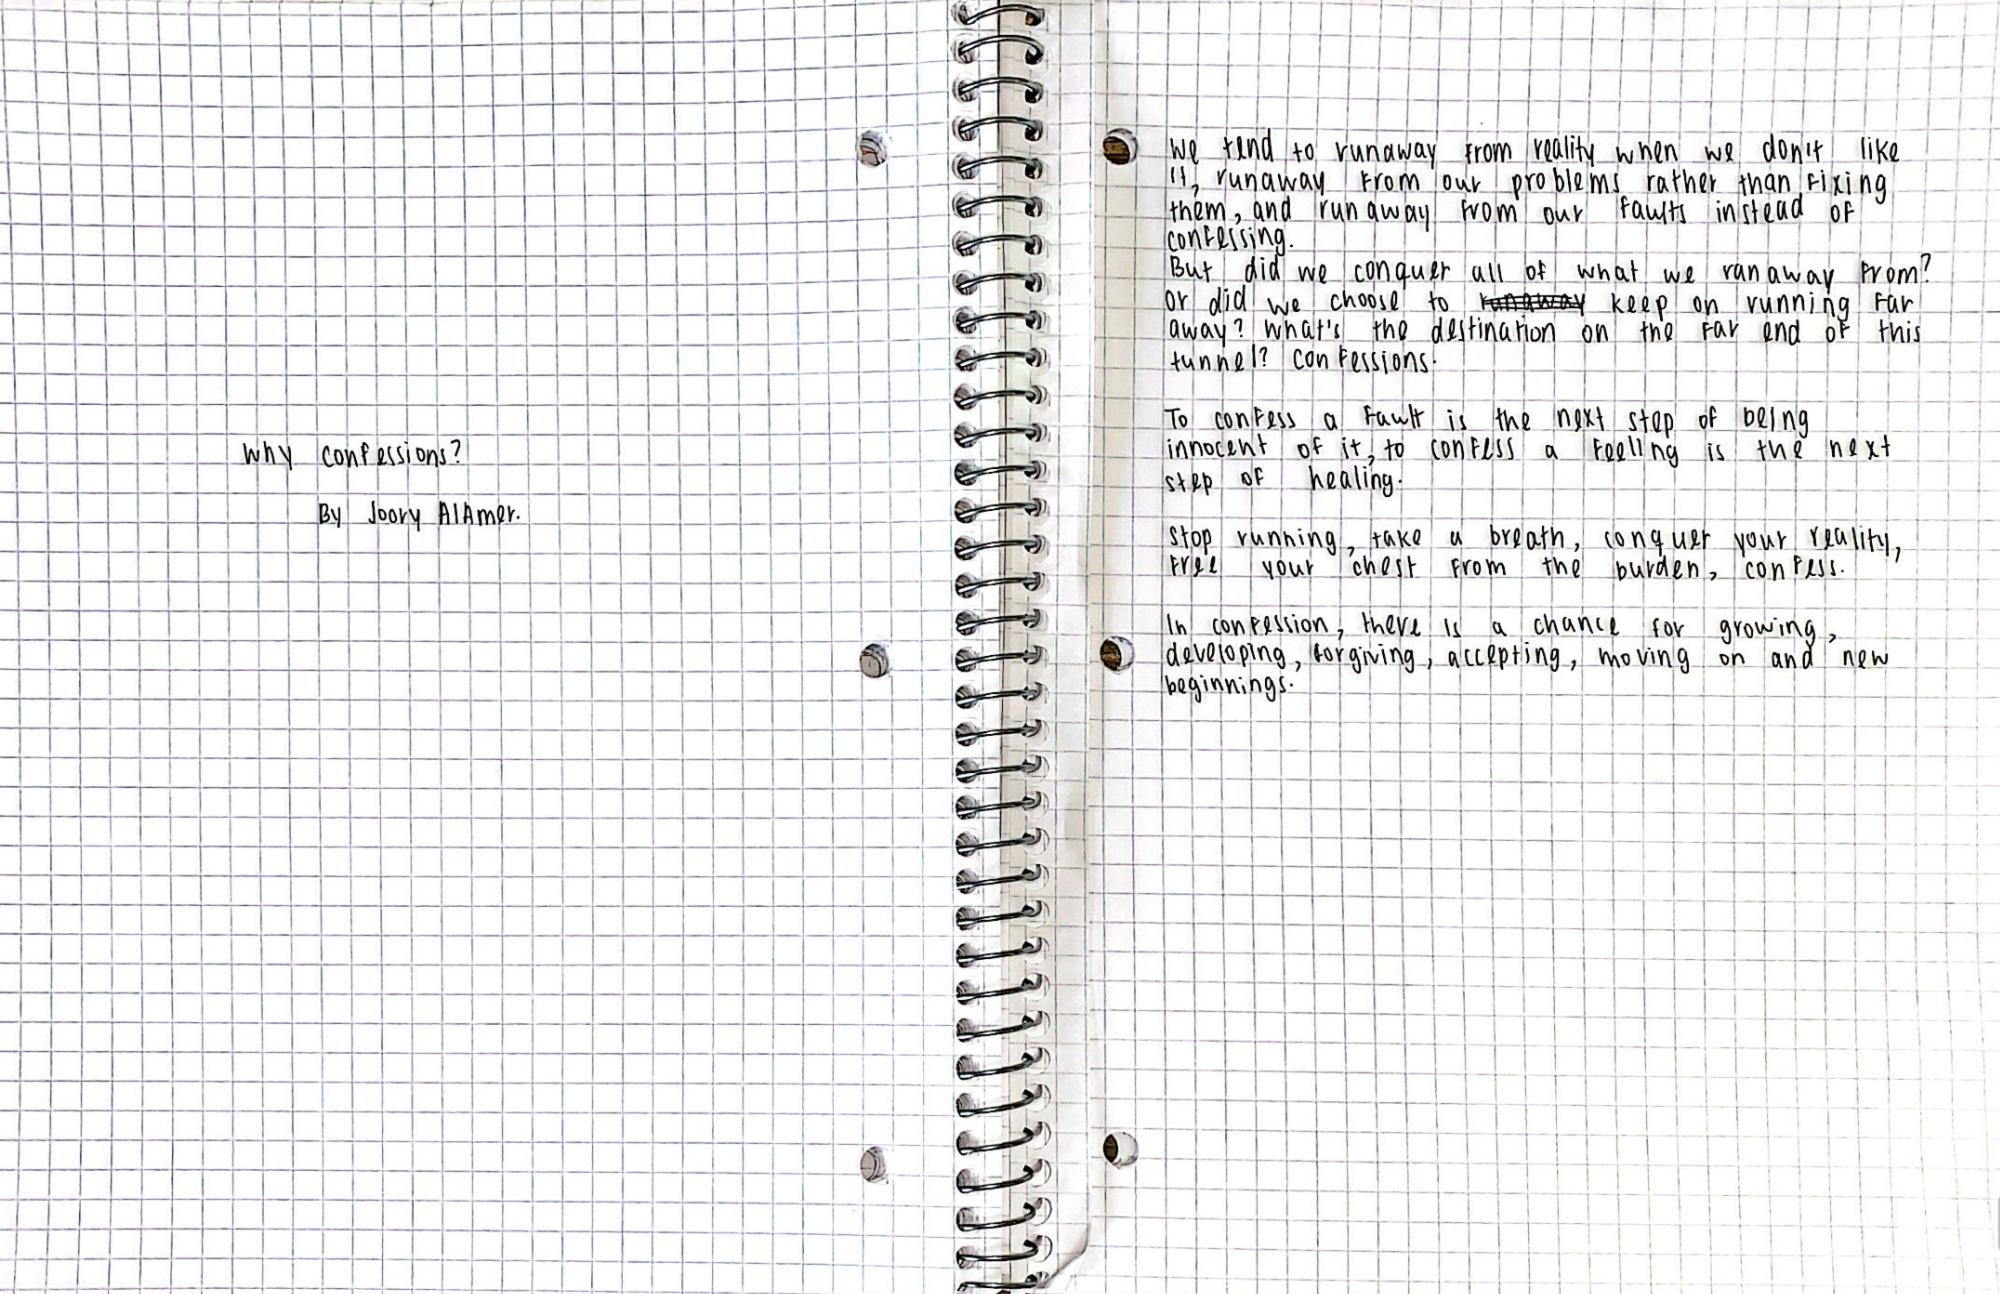 Why confessions?
By Joory AlAmer.
We tend to runaway from reality when we don't like
it, runaway from our problems rather than fixing
them, and run away from our faults instead of
confessing.
But did we conquer all of what we ran away from?
Or did we choose to runaway keep on running far
away? What's the destination on the far end of this
tunnel? confessions.
To confess a fault is the next step of being
innocent of it, to confess a feeling is the next
step of healing.
Stop running, take a breath, conquer your reality,
free your chest from the burden, confess.
In confession, there is a chance for growing,
developing, forgiving, accepting, moving on and new
beginnings.